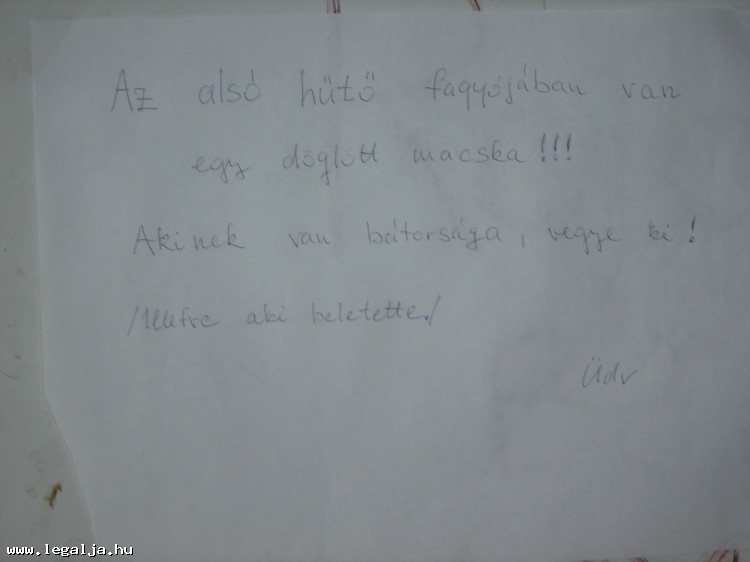 Az alsó hűtő fagyójában van
egy döglött macska!!!
Akinek van bátorsága, vegye ki!
/Illetve aki beletette./
Üdv
www.legalja.hu